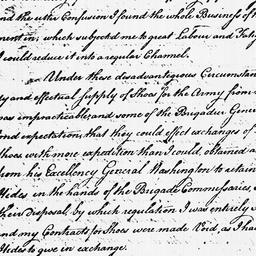 and the utter Confusion I found the whole Business of
ment in, which subjected me to great Labour and
I could reduce it into a regular Channel.
Under these disadvantageous Circumstan
ty and effectual supply of Shoes for the Army from
was impracticable; and some of the Brigadier Gener
ond expectation, that they could effect exchanges of
Shoes with more expedition than I could, obtained a
from his Excellency General Washington to retain
Hides in the hands of the Brigade Commissaries,
their Disposal, by which regulation I was entirely
and my Contracts for Shoes were made Void, as I ha
Hides to give in exchange.